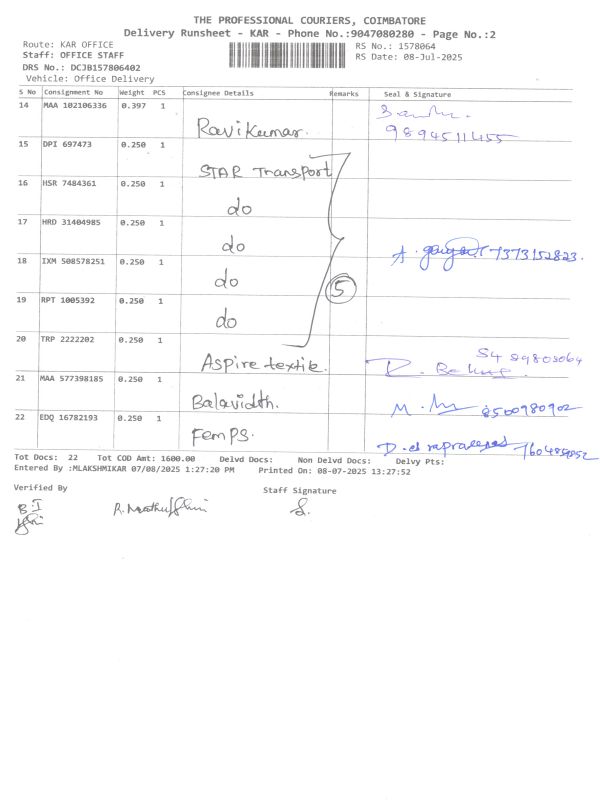 THE PROFESSIONAL COURIERS, COIMBATORE
Delivery Runsheet - KAR - Phone No.:9047080280 - Page No.:2
Route: KAR OFFICE RS No.: 1578064
Staff: OFFICE STAFF RS Date: 08-Jul-2025
DRS No.: DCJB157806402
Vehicle: Office Delivery
S No Consignment No Weight PCS Consignee Details Remarks Seal & Signature
14 MAA 102106336 0.397 1 Ravikumar. 9894511455
15 DPI 697473 0.250 1 STAR Transport
16 HSR 7484361 0.250 1 do
17 HRD 31404985 0.250 1 do 7373152823.
18 IXM 508578251 0.250 1 do 5
19 RPT 1005392 0.250 1 do
20 TRP 2222202 0.250 1 Aspire textile.
21 MAA 577398185 0.250 1 Balavidth. 8500980902
22 EDQ 16782193 0.250 1 FemPS.
Tot Docs: 22 Tot COD Amt: 1600.00 Delvd Docs: Non Delvd Docs: Delvy Pts:
Entered By :MLAKSHMIKAR 07/08/2025 1:27:20 PM Printed On: 08-07-2025 13:27:52
Verified By Staff Signature